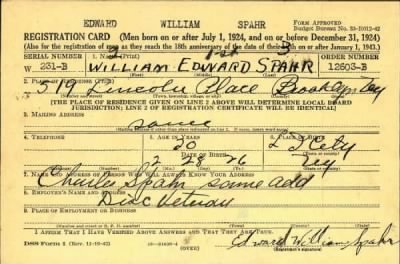 EDWARD WILLIAM SPAHR
REGISTRATION CARD (Men born on or after July 1, 1924, and on or before December 31, 1924)
FORM APPROVED
Budget Bureau No. 33-R012-42
(Also for the registration of men as they reach the 18th anniversary of the date of their birth on or after January 1, 1943.)
SERIAL NUMBER
1. NAME (Print)
ORDER NUMBER
W 231-B
WILLIAM EDWARD SPAHR
12603-B
2. PLACE OF RESIDENCE (Print)
519 Lincoln Place Brooklyn
[THE PLACE OF RESIDENCE GIVEN ON LINE 2 ABOVE WILL DETERMINE LOCAL BOARD
JURISDICTION; LINE 2 OF REGISTRATION CERTIFICATE WILL BE IDENTICAL]
3. MAILING ADDRESS
same
4. TELEPHONE
DATE OF BIRTH
2 28 26
7. NAME AND ADDRESS OF PERSON WHO WILL ALWAYS KNOW YOUR ADDRESS
Charles Spahr same add
8. EMPLOYER'S NAME AND ADDRESS
9. PLACE OF EMPLOYMENT OR BUSINESS
I AFFIRM THAT I HAVE VERIFIED ABOVE ANSWERS AND THAT THEY ARE TRUE.
DSS Form 1 (Rev. 11-16-42)
(OVER)
Edward William Spahr
(Registrant's signature)